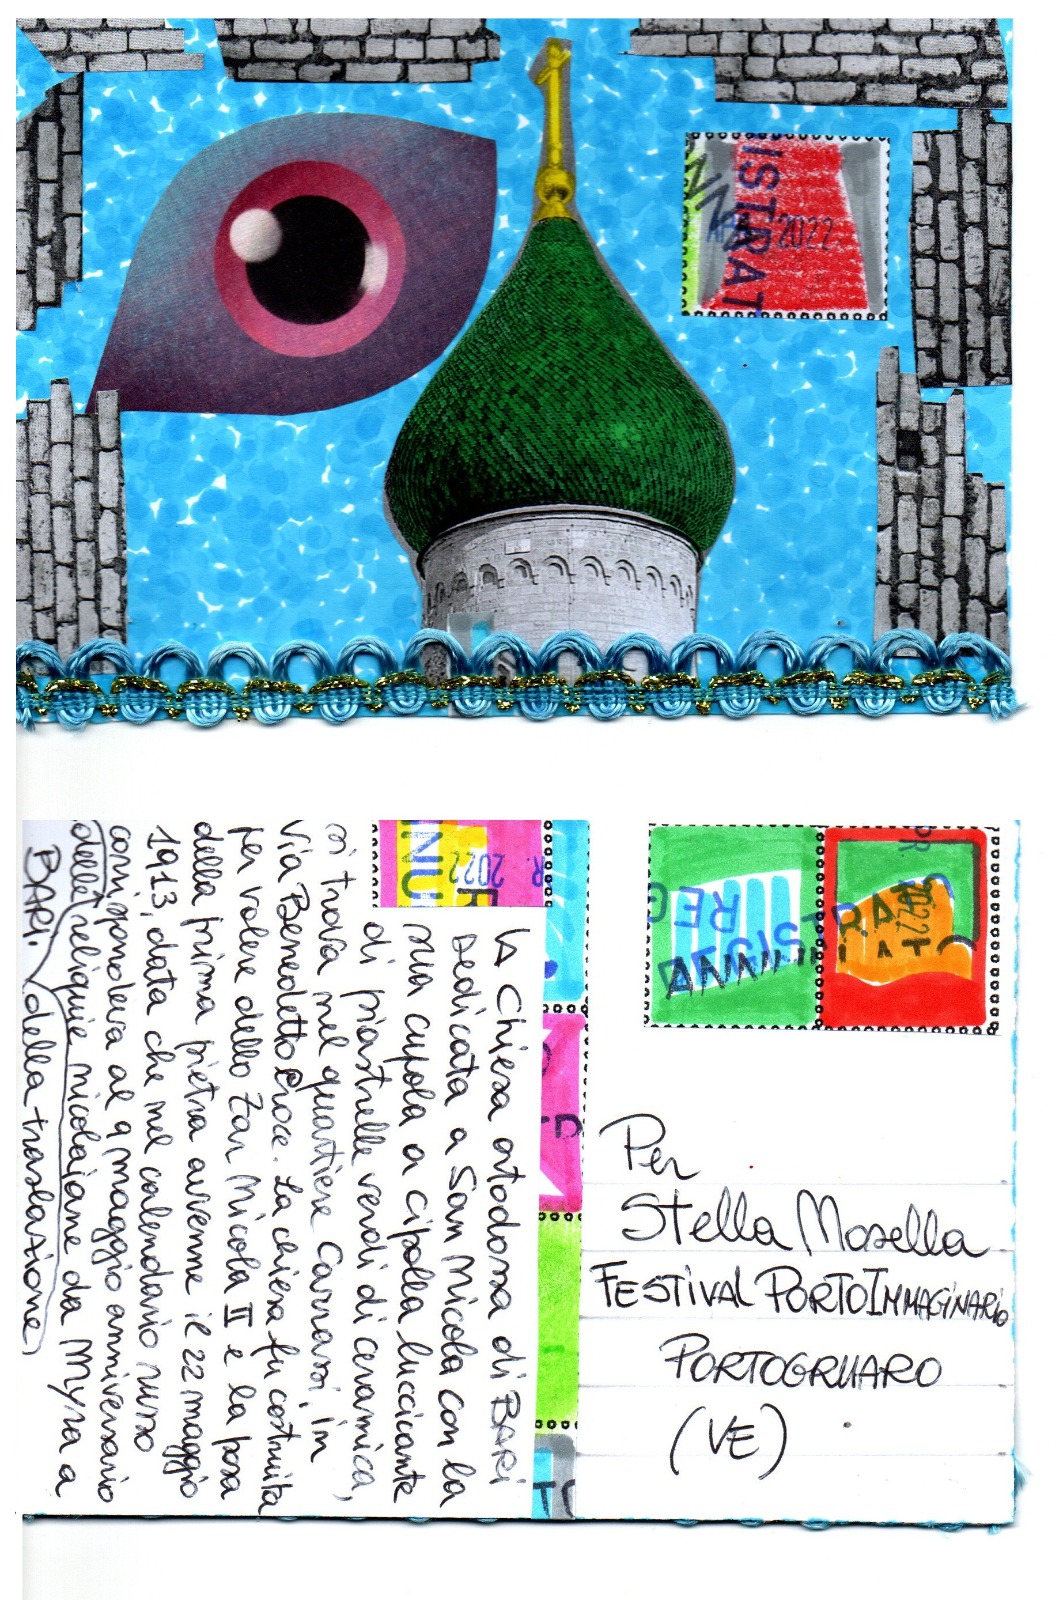 ISTRAT
2022
LA Chiesa ortodossa di BARI
dedicata a San Nicola con la
sua cupola a cipolla luccicante
di piastrelle verdi di ceramica,
si trova nel quartiere Carrassi, in
Via Benedetto Croce. La chiesa fu costruita
per volere dello Zar Nicola II e la posa
della prima pietra avvenne il 22 maggio
1913, data che nel calendario russo
corrispondeva al 9 maggio anniversario
della traslazione
delle reliquie nicolaiane da Myra a
BARI.
NU
R. 2022
REG
ISTRAT
ANNULLATO
2022
Per
Stella Mosella
FESTIVAL PORTOIMMAGINARIO
PORTOGRUARO
(VE)